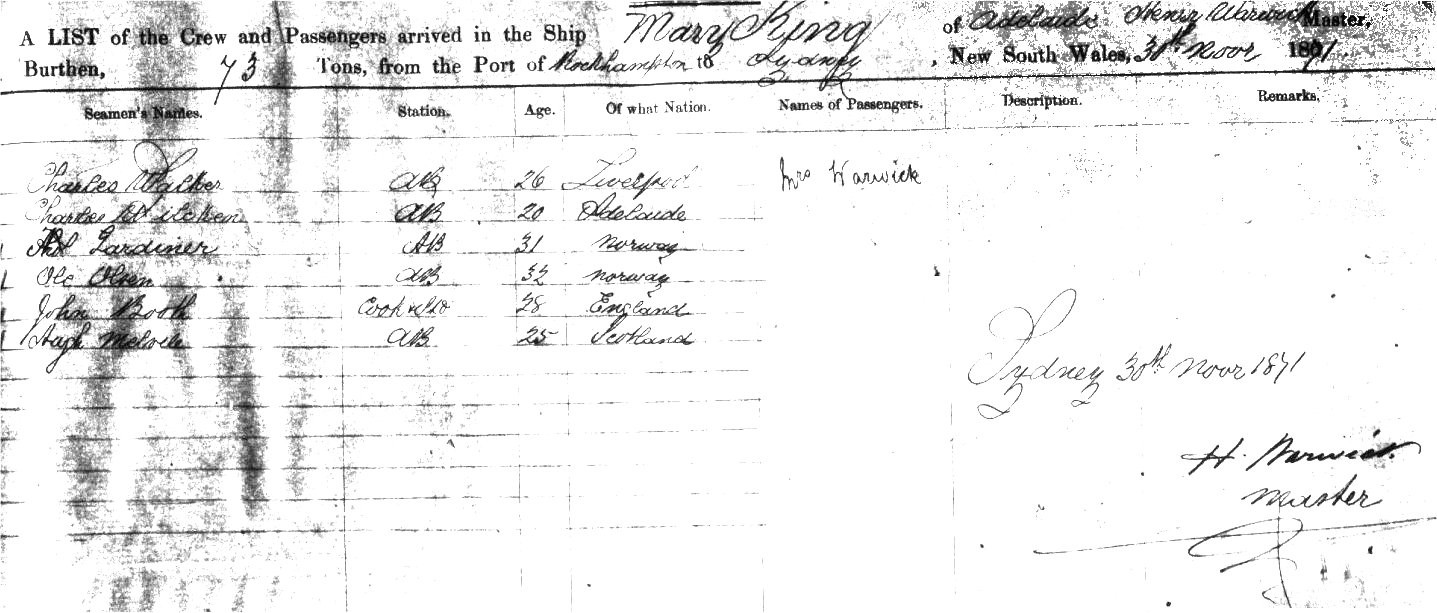 A LIST of the Crew and Passengers arrived in the Ship Mary King of Adelaide Henry Warwick Master,
Burthen, 73 Tons, from the Port of Rockhampton to Sydney, New South Wales, 30th Novr 1871.
Seamen's Names. Station. Age. Of what Nation. Names of Passengers. Description. Remarks.
Charles Walker AB 26 Liverpool Mrs Warwick
Charles AB 20 Adelaide
Gardiner AB 31 Norway
Ole Olsen AB 32 Norway
John Booth Cook & 28 England
Hugh AB 25 Scotland
Sydney 30th Novr 1871
H. Warwick
Master